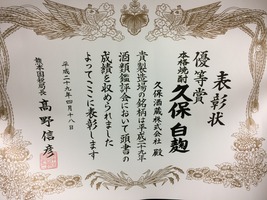 表彰状
優等賞
本格焼酎 久保 白麹
久保酒蔵株式会社 殿
貴製造場の銘柄は平成二十九年
酒類鑑評会において頭書の
成績を収められました
よってここに表彰します
平成二十九年四月十八日
熊本国税局長 髙野信彦